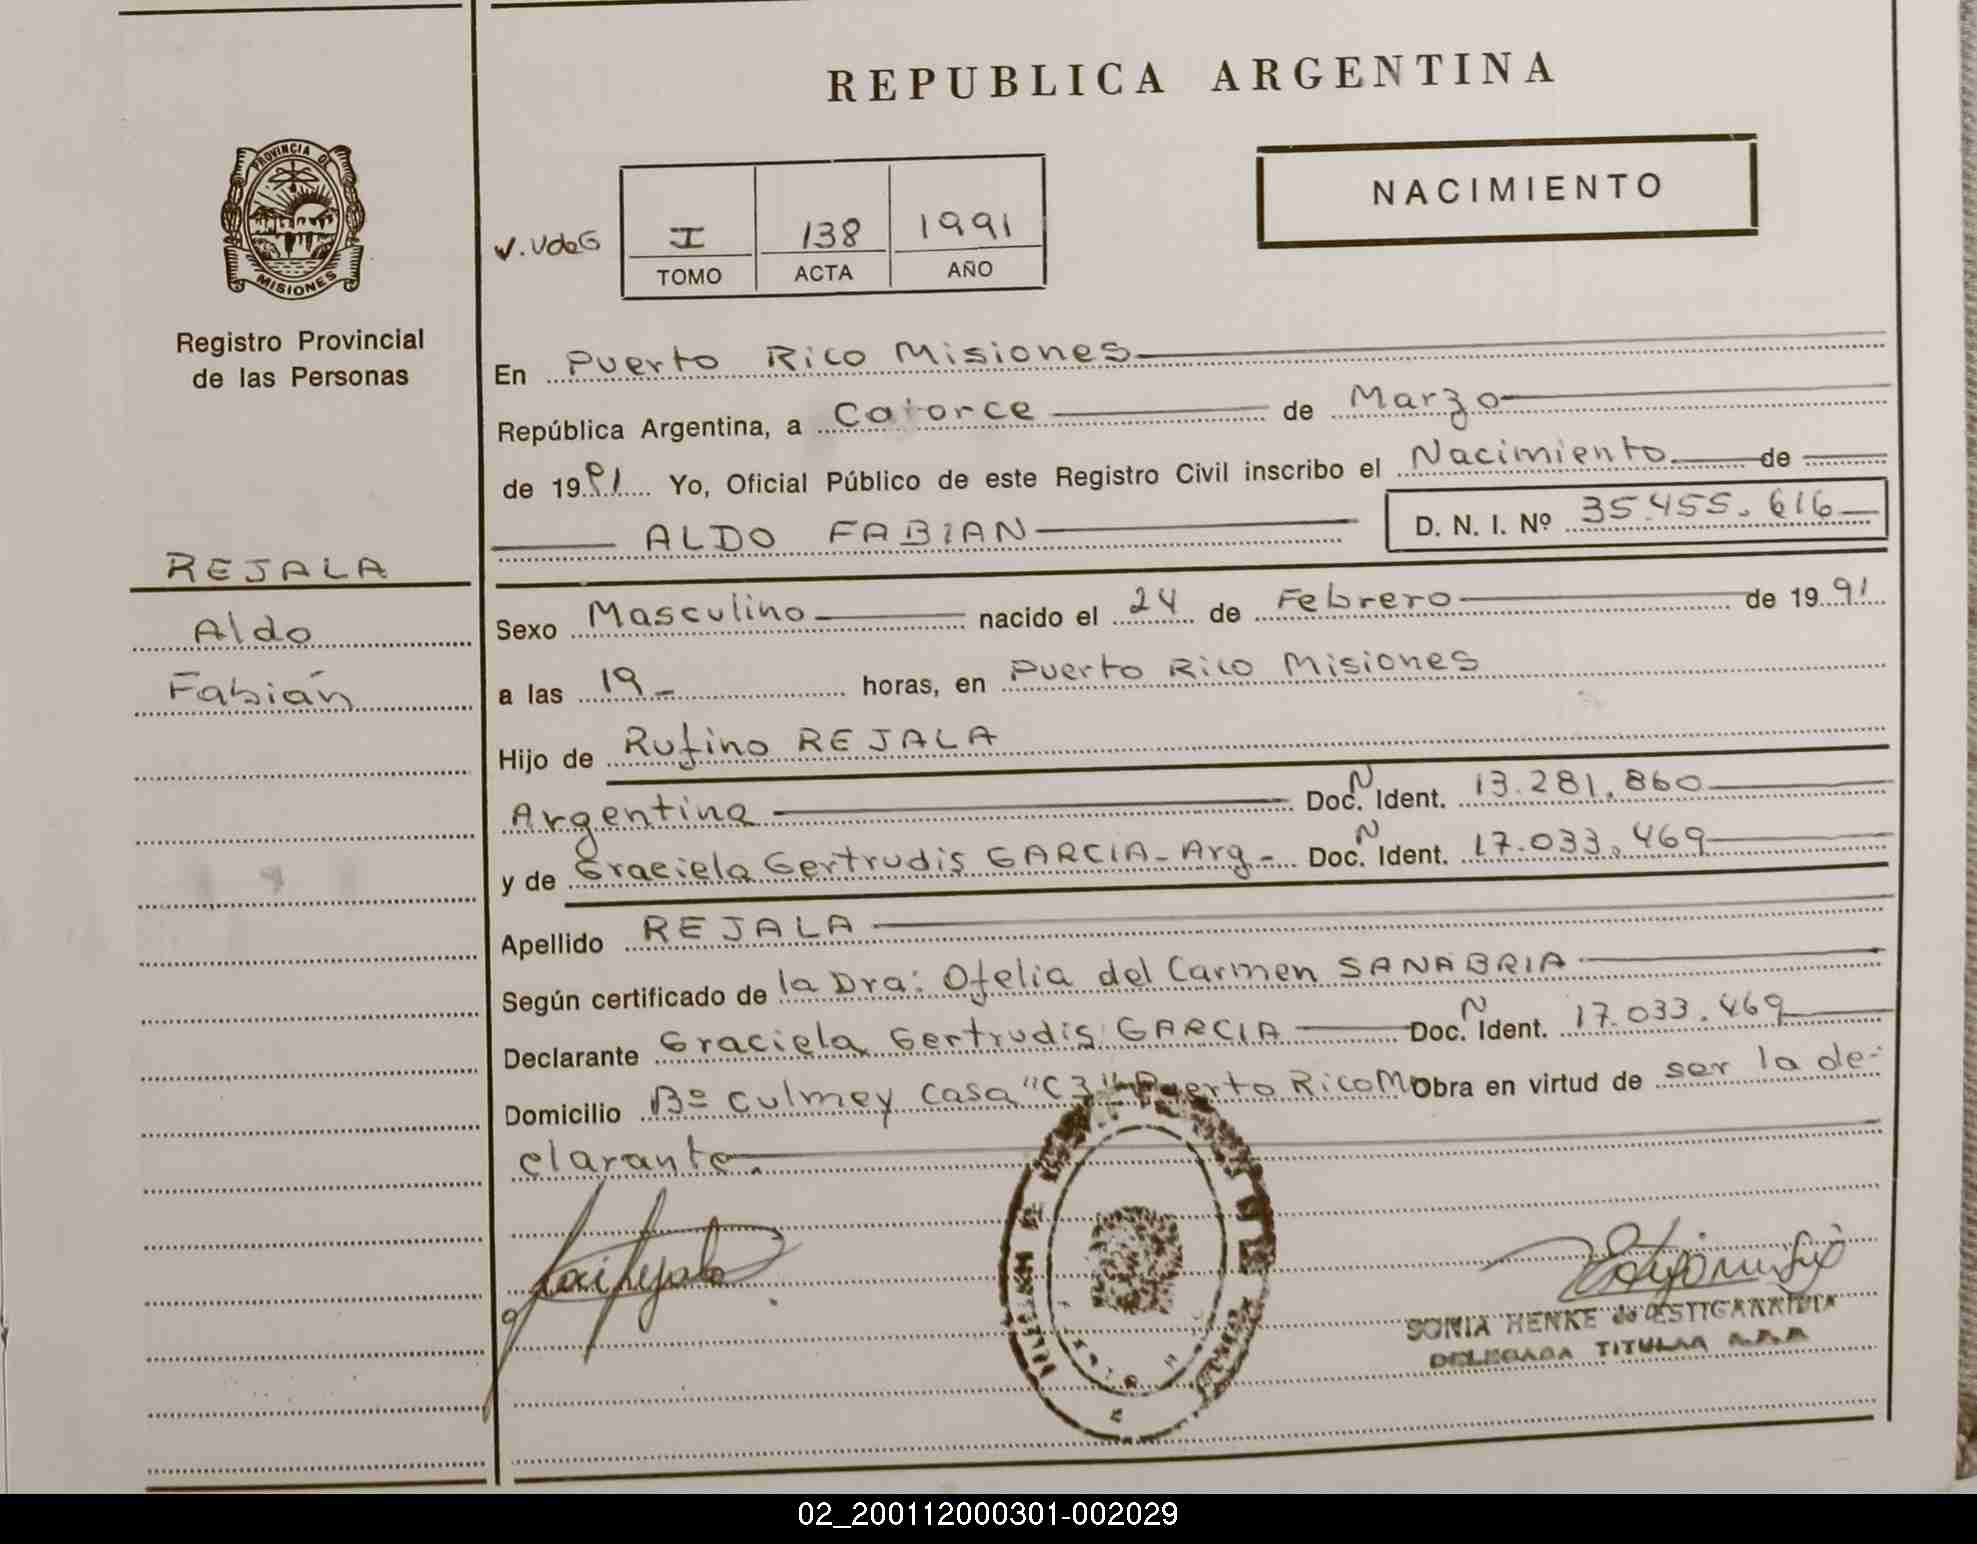 REPUBLICA ARGENTINA
PROVINCIA DE
MISIONES
Registro Provincial
de las Personas
NACIMIENTO
V. UdeG
I 138 1991
TOMO ACTA AÑO
En Puerto Rico Misiones
República Argentina, a Catorce de Marzo
de 1991 Yo, Oficial Público de este Registro Civil inscribo el Nacimiento de
ALDO FABIAN D. N. I. Nº 35.455.616
REJALA
Aldo
Fabián
Sexo Masculino nacido el 24 de Febrero de 1991
a las 19 horas, en Puerto Rico Misiones
Hijo de Rufino REJALA
Argentina Doc. N Ident. 13.281.860
y de Graciela Gertrudis GARCIA - Arg - Doc. N Ident. 17.033.469
Apellido REJALA
Según certificado de la Dra: Ofelia del Carmen SANABRIA
Declarante Graciela Gertrudis GARCIA Doc. N Ident. 17.033.469
Domicilio Bº Culmey Casa "C3" Puerto Rico Obra en virtud de ser la de-
clarante.
SONIA HENKE de
DELEGADA TITULAR
02_200112000301-002029